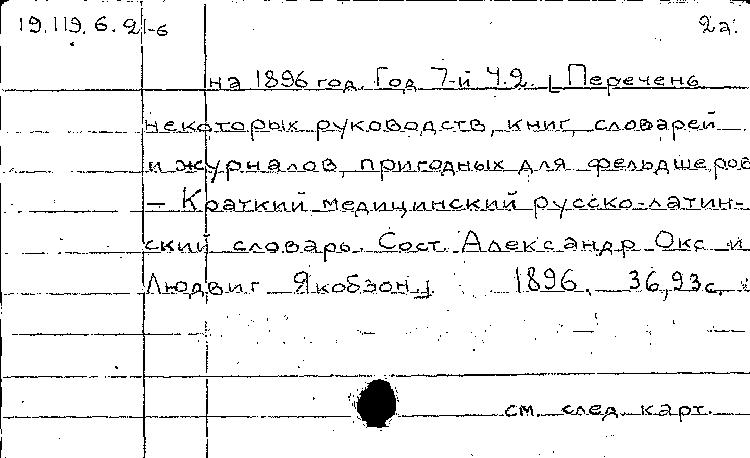 19.119.6.21-6 2а.
на 1896 год. Год 7-й Ч.2. [Перечень
некоторых руководств, книг, словарей
и журналов, пригодных для фельдшеров
– Краткий медицинский русско-латин-
ский словарь. Сост. Александр Окс и
Людвиг Якобзон.] 1896. 36,93с.
см. след. карт.